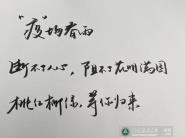 "疫"场春雨
断不了人心，阻不了花明满园
桃红柳绿，等你归来